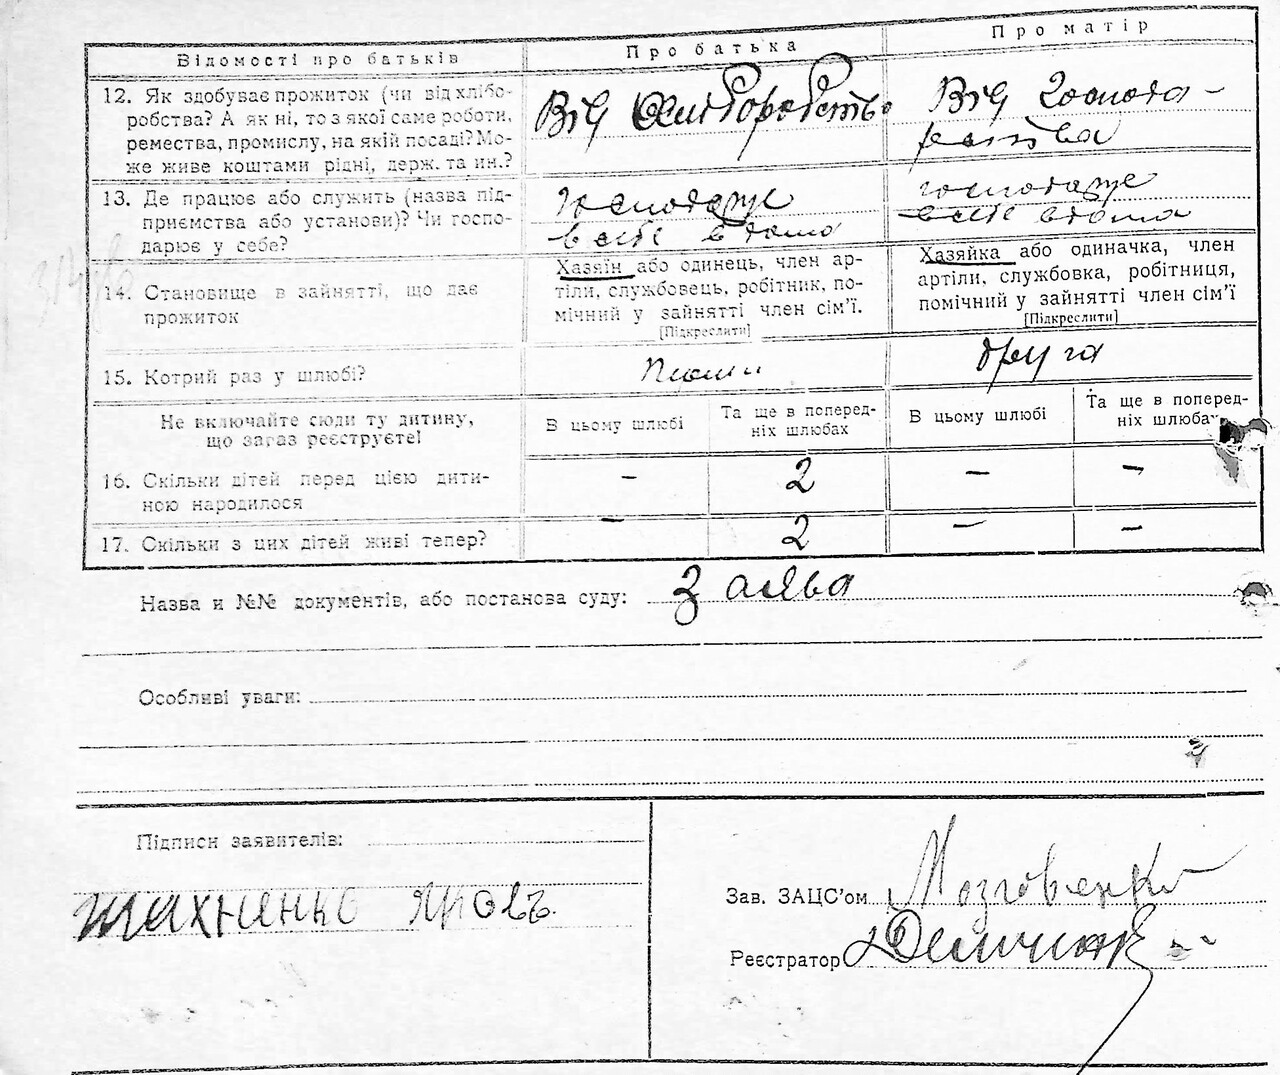 Відомості про батьків
Про батька
Про матір
12. Як здобуває прожиток (чи від хлібо-
робства? А як ні, то з якої саме роботи,
ремества, промислу, на якій посаді? Мо-
же живе коштами рідні, держ. та ин.?
Від
Від
13. Де працює або служить (назва під-
приємства або установи)? Чи госпо-
дарює у себе?
господарює
в себе вдома
господарює
в себе вдома
14. Становище в зайнятті, що дає
прожиток
Хазяїн або одинець, член ар-
тіли, службовець, робітник, по-
мічний у зайнятті член сім’ї.
[Підкреслити]
Хазяйка або одиначка, член
артіли, службовка, робітниця,
помічний у зайнятті член сім’ї
[Підкреслити]
15. Котрий раз у шлюбі?
друга
Не включайте сюди ту дитину,
що зараз реєструєте!
В цьому шлюбі
Та ще в поперед-
ніх шлюбах
В цьому шлюбі
Та ще в поперед-
ніх шлюбах
16. Скільки дітей перед цією дити-
ною народилося
– 2 – –
17. Скільки з цих дітей живі тепер?
– 2 – –
Назва и №№ документів, або постанова суду: Заява
Особливі уваги:
Підписи заявителів:
Зав. ЗАЦС’ом Мозговенко
Реєстратор